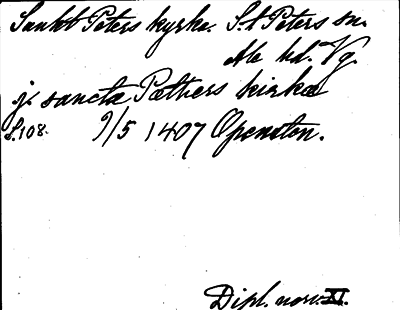 Sankt Peters kyrka. S:t Peters sn.
Ale hd. Vg.
j sancta Pæthers kirka
S. 108. 9/5 1407 Openston.
Dipl. norv. XI.